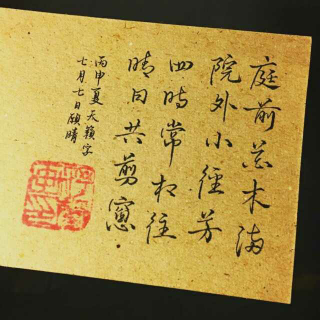 庭前花木满
院外小径芳
四时常相往
晴日共剪窗
丙申夏天籁字
七月七日颀晴